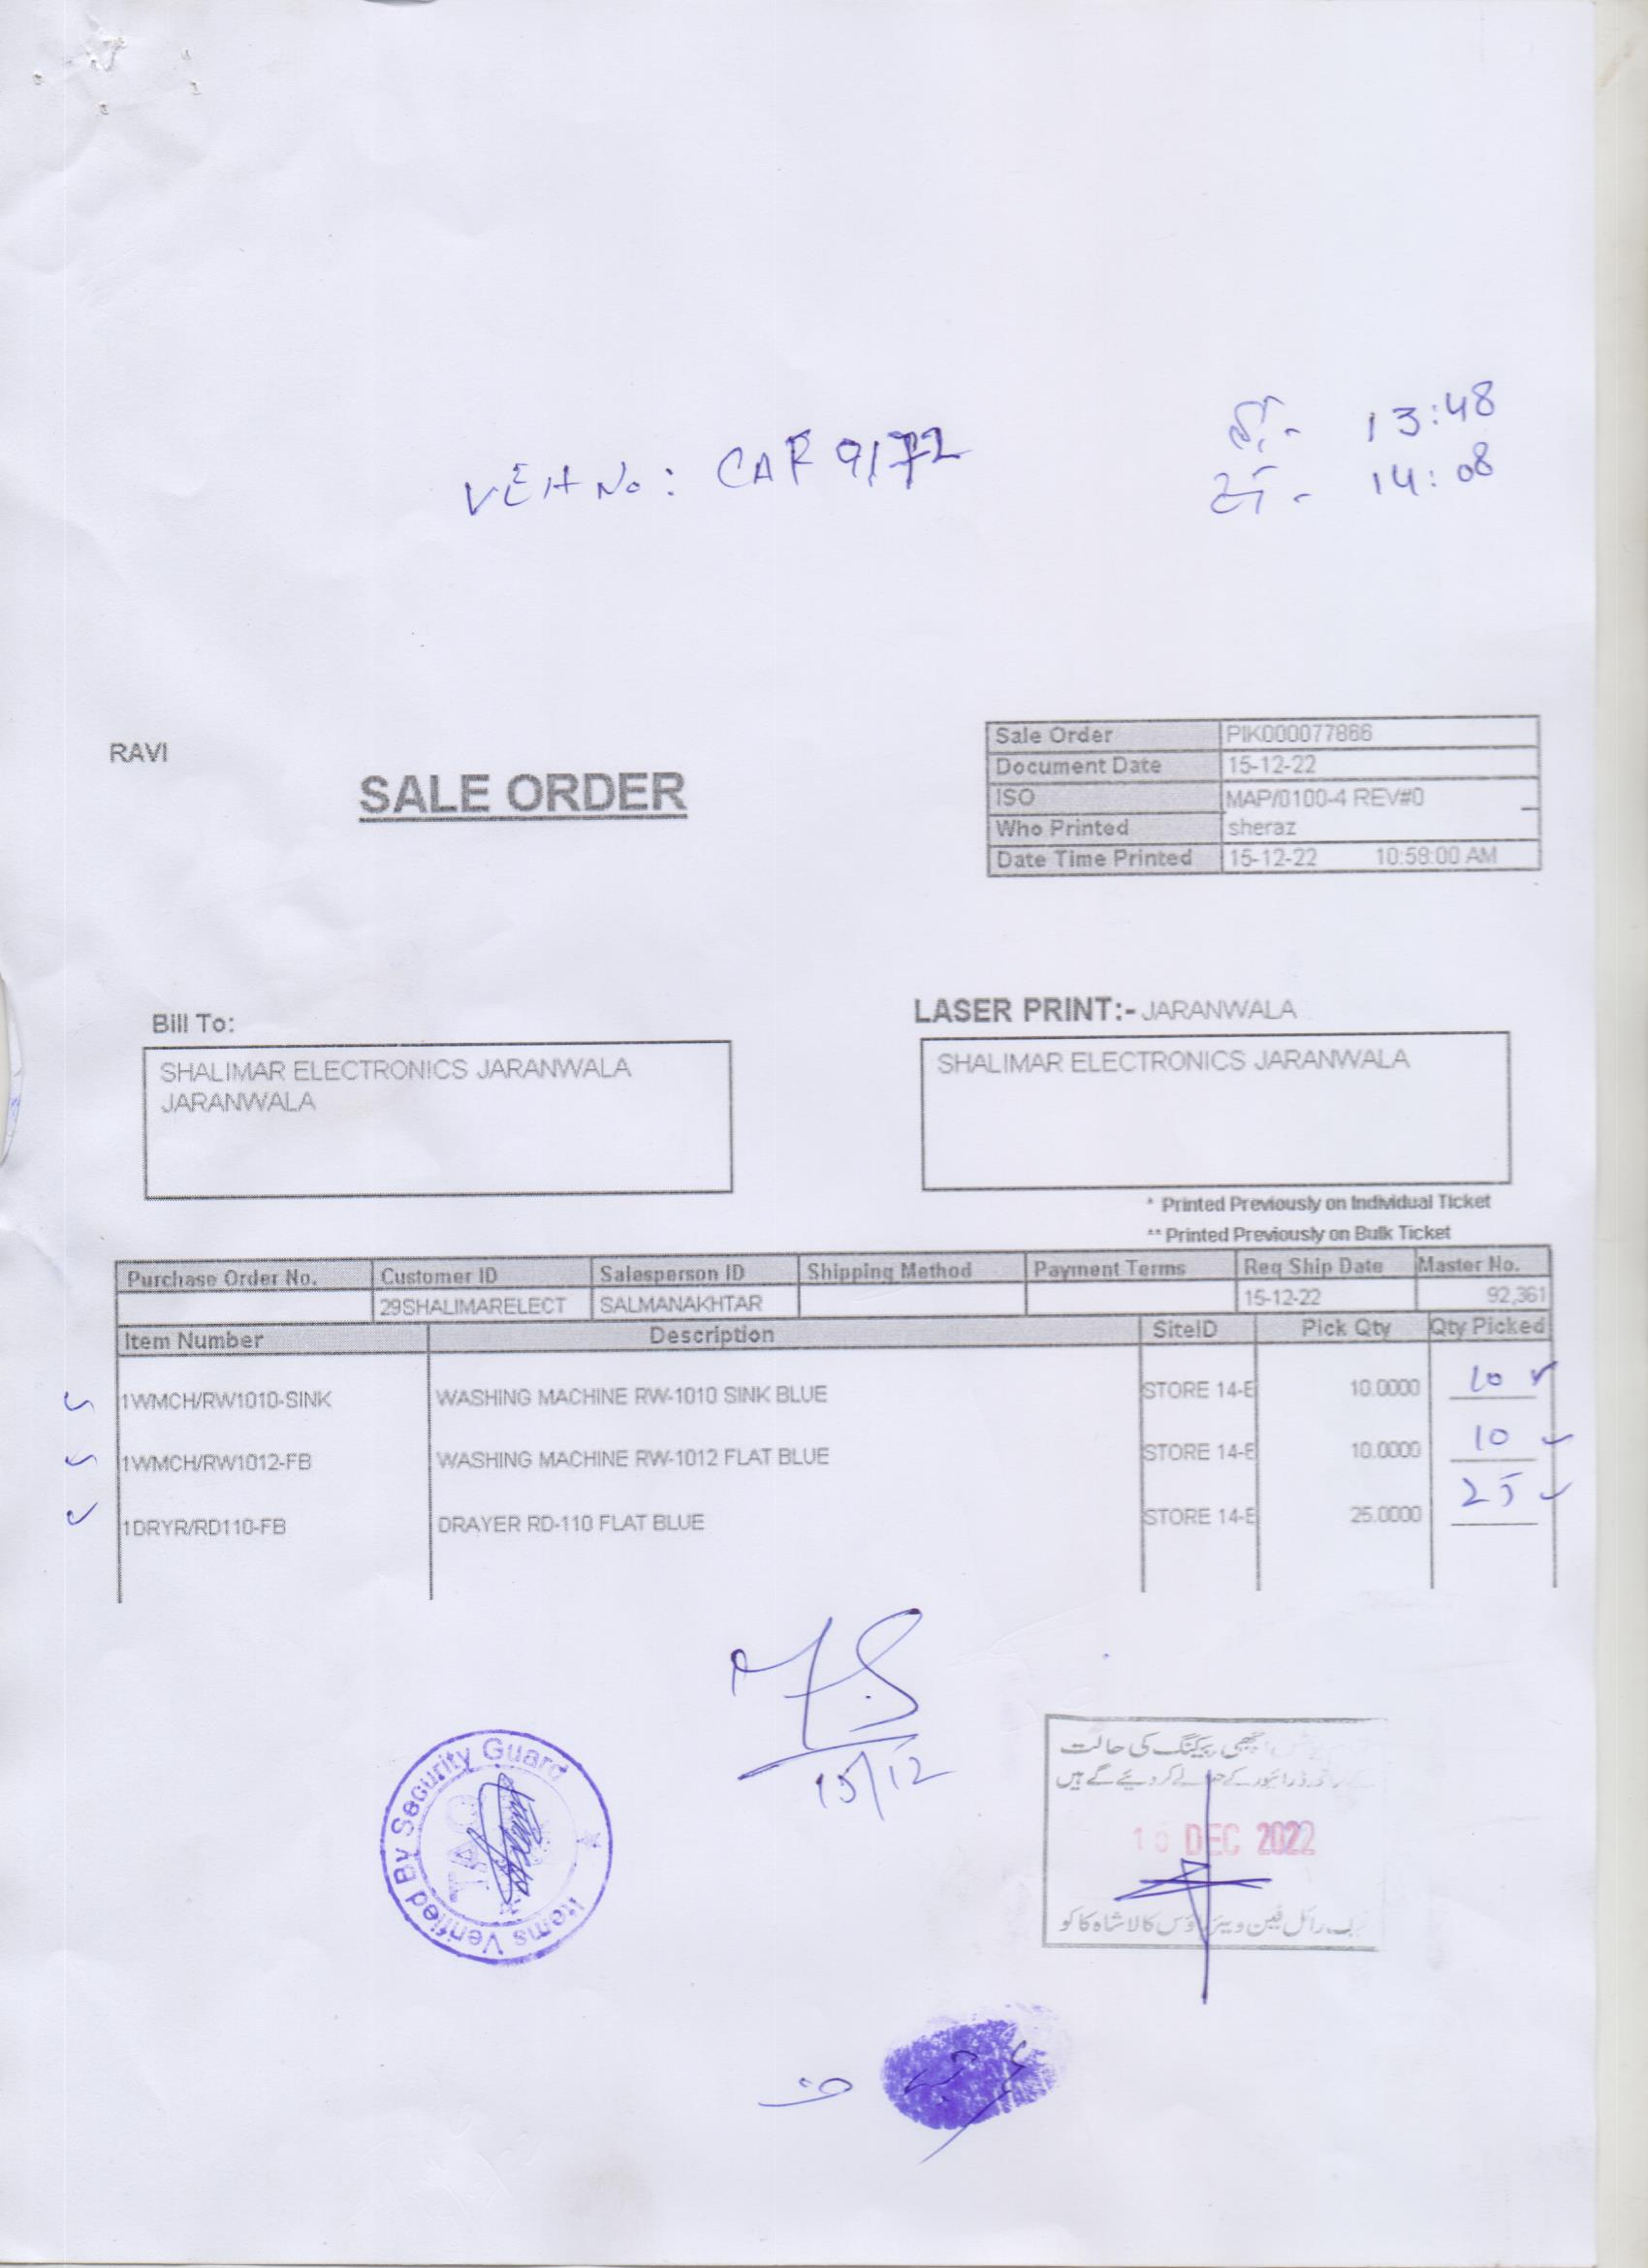 VEH No: CAF 9172
13:48
14:08
RAVI
SALE ORDER
Sale Order PIK000077866
Document Date 15-12-22
ISO MAP/0100-4 REV#0
Who Printed sheraz
Date Time Printed 15-12-22 10:59:00 AM
Bill To:
SHALIMAR ELECTRONICS JARANWALA
JARANWALA
LASER PRINT:- JARANWALA
SHALIMAR ELECTRONICS JARANWALA
* Printed Previously on Individual Ticket
** Printed Previously on Bulk Ticket
Purchase Order No. Customer ID Salesperson ID Shipping Method Payment Terms Req Ship Date Master No.
29SHALIMARELECT SALMANAKHTAR 15-12-22 92,361
Item Number Description SiteID Pick Qty Qty Picked
1WMCH/RW1010-SINK WASHING MACHINE RW-1010 SINK BLUE STORE 14-E 10.0000 10
1WMCH/RW1012-FB WASHING MACHINE RW-1012 FLAT BLUE STORE 14-E 10.0000 10
1DRYR/RD110-FB DRAYER RD-110 FLAT BLUE STORE 14-E 25.0000 25
15/12
Items Verified By Security Guard
اچھی پیکنگ کی حالت
ڈرائیور کے حوالے کر دیئے گے ہیں
DEC 2022
رائل فین ویئر ہاؤس کالا شاہ کاکو